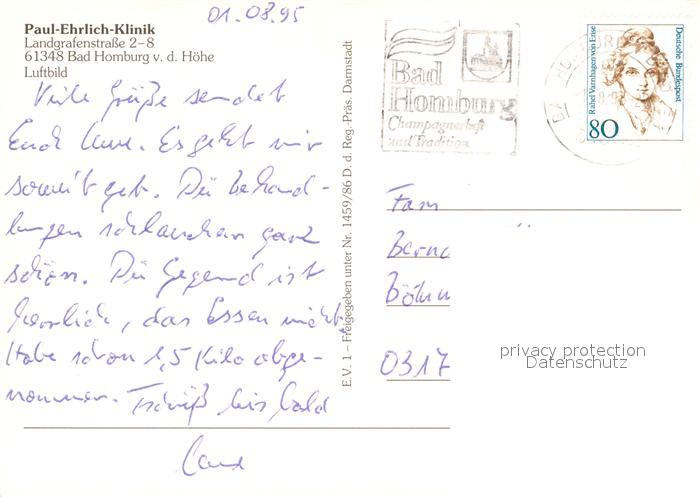 01.08.95
Paul-Ehrlich-Klinik
Landgrafenstraße 2–8
61348 Bad Homburg v. d. Höhe
Luftbild
Viele Grüße sendet
Euch Es geht mir
soweit gut. Die Behand-
lungen schlauchen ganz
schön. Die Gegend ist
herrlich, das Essen nicht.
Habe schon 1,5 Kilo abge-
nommen. Tschüß bis bald
E.V. 1 – Freigegeben unter Nr. 1459/86 D. d. Reg.-Präs. Darmstadt
Bad
Homburg
Champagnerluft
und Tradition
Rahel Varnhagen von Ense
Deutsche Bundespost
80
Fam
Böhm
0317
privacy protection
Datenschutz